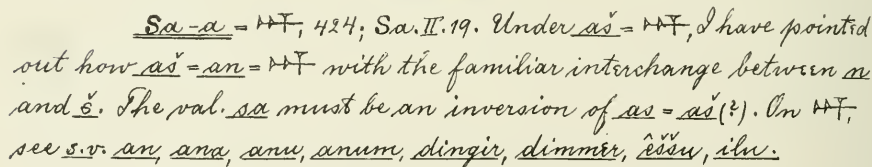 Sa-a = 𒀭, 424; Sa. II. 19. Under aš = 𒀭, I have pointed
out how aš = an = 𒀭 with the familiar interchange between n
and š. The val. sa must be an inversion of as = aš(?). On 𒀭,
see s.v. an, ana, anu, anum, dingir, dimmer, êššu, ilu.